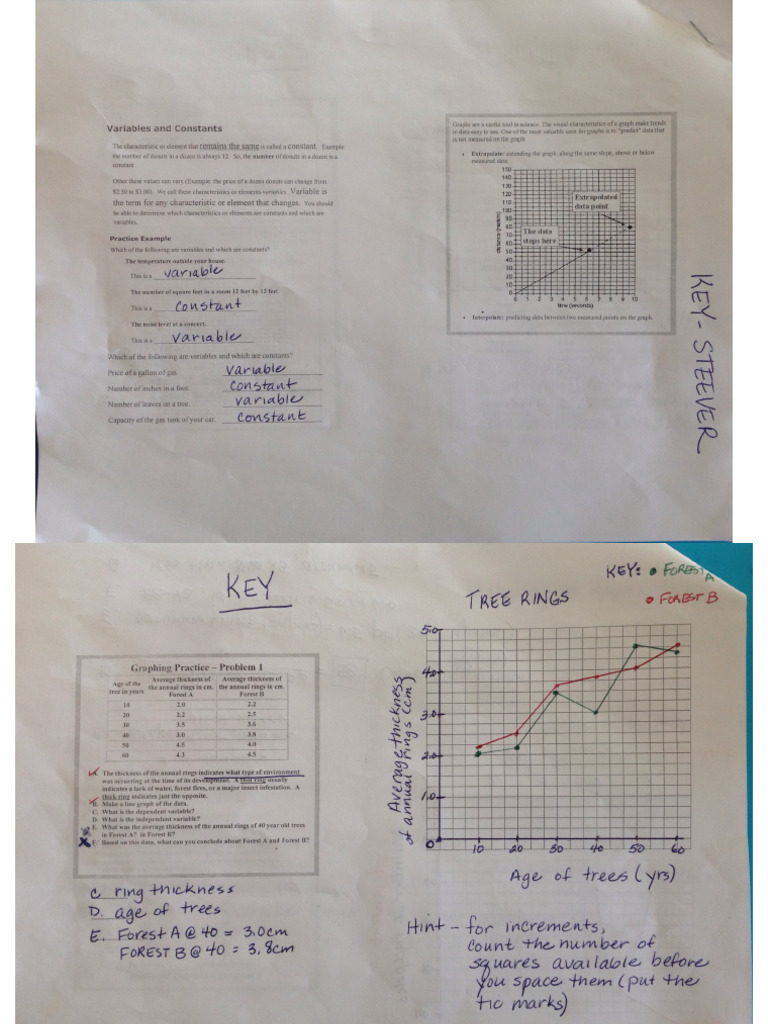 Variables and Constants
The characteristic or element that remains the same is called a constant. Example:
the number of donuts in a dozen is always 12. So, the number of donuts in a dozen is a
constant.
Other these values can vary (Example: the price of a dozen donuts can change from
$2.50 to $3.00). We call these characteristics or elements variables. Variable is
the term for any characteristic or element that changes. You should
be able to determine which characteristics or elements are constants and which are
variables.
Practice Example
Which of the following are variables and which are constants?
The temperature outside your house.
This is a variable
The number of square feet in a room 12 feet by 12 feet.
This is a constant
The noise level at a concert.
This is a variable
Which of the following are variables and which are constants?
Price of a gallon of gas. variable
Number of inches in a foot. constant
Number of leaves on a tree. variable
Capacity of the gas tank of your car. constant
Graphs are a useful tool in science. The visual characteristics of a graph make trends
in data easy to see. One of the most valuable uses for graphs is to "predict" data that
is not measured on the graph.
• Extrapolate: extending the graph, along the same slope, above or below
measured data.
150
140
130
120
110
100
90
80
70
60
50
40
30
20
10
0
distance (meters)
Extrapolated
data point
The data
stops here
0 1 2 3 4 5 6 7 8 9 10
time (seconds)
• Interpolate: predicting data between two measured points on the graph.
KEY - STEEVER
KEY
Graphing Practice – Problem 1
Age of the tree in years | Average thickness of the annual rings in cm. Forest A | Average thickness of the annual rings in cm. Forest B
10 2.0 2.2
20 2.2 2.5
30 3.5 3.6
40 3.0 3.8
50 4.5 4.0
60 4.3 4.5
A. The thickness of the annual rings indicates what type of environment
was occurring at the time of its development. A thin ring usually
indicates a lack of water, forest fires, or a major insect infestation. A
thick ring indicates just the opposite.
B. Make a line graph of the data.
C. What is the dependent variable?
D. What is the independent variable?
E. What was the average thickness of the annual rings of 40 year old trees
in Forest A? in Forest B?
F. Based on this data, what can you conclude about Forest A and Forest B?
C. ring thickness
D. age of trees
E. Forest A @ 40 = 3.0cm
FOREST B @ 40 = 3.8cm
KEY: • FOREST A
• FOREST B
TREE RINGS
5.0
4.0
3.0
2.0
1.0
0
Average thickness
of annual rings (cm)
10 20 30 40 50 60
Age of trees (yrs)
Hint - for increments,
count the number of
squares available before
you space them (put the
tic marks)